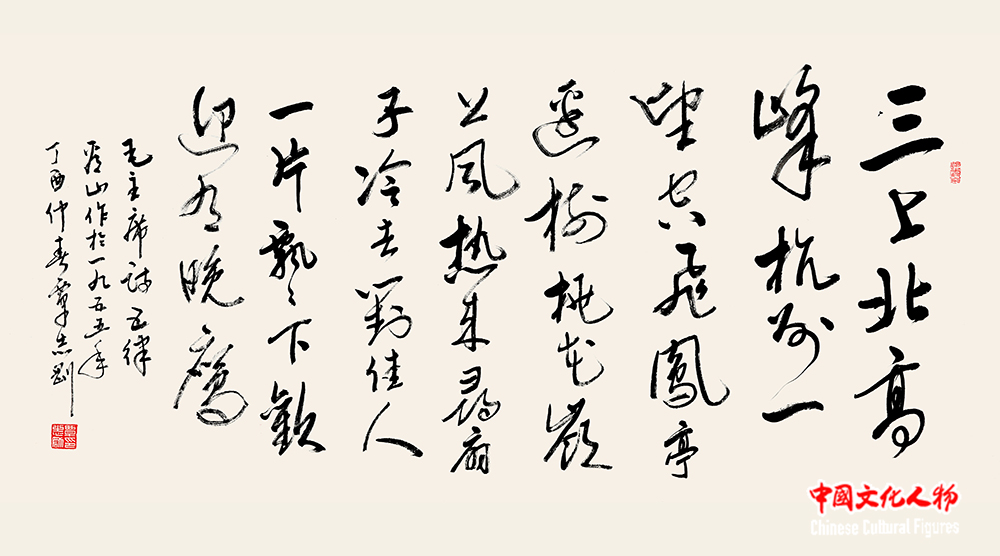 三上北高
峰杭州一
望空飛鳳亭
邊樹桃花嶺
上风热来尋扇
子冷去對佳人
一片飘〻下歡
迎有晚鷹
毛主席诗五律
看山作於一九五五年
丁酉仲春覃志剛
中國文化人物
Chinese Cultural Figures